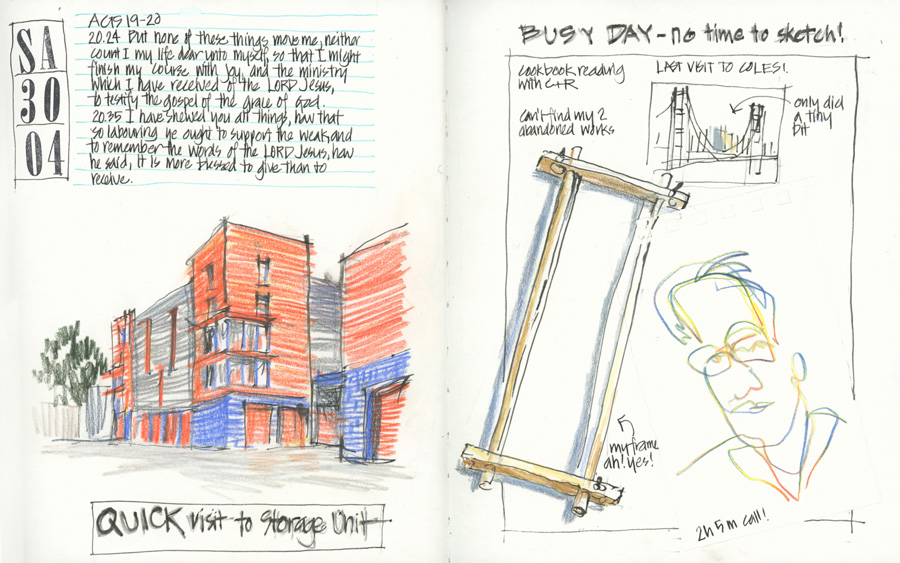 SA
30
04
ACTS 19-20
20.24 But none of these things move me, neither
count I my life dear unto myself, so that I might
finish my course with joy, and the ministry
which I have received of the LORD Jesus,
to testify the gospel of the grace of God.
20.35 I have shewed you all things, how that
so labouring ye ought to support the weak, and
to remember the words of the LORD Jesus, how
he said, it is more blessed to give than to
receive.
QUICK visit to Storage Unit
BUSY DAY - no time to sketch!
cookbook reading
with C+R
can't find my 2
abandoned works
LAST VISIT TO COLES!.
only did
a tiny
bit
my frame
ah! yes!
2h 5m call!